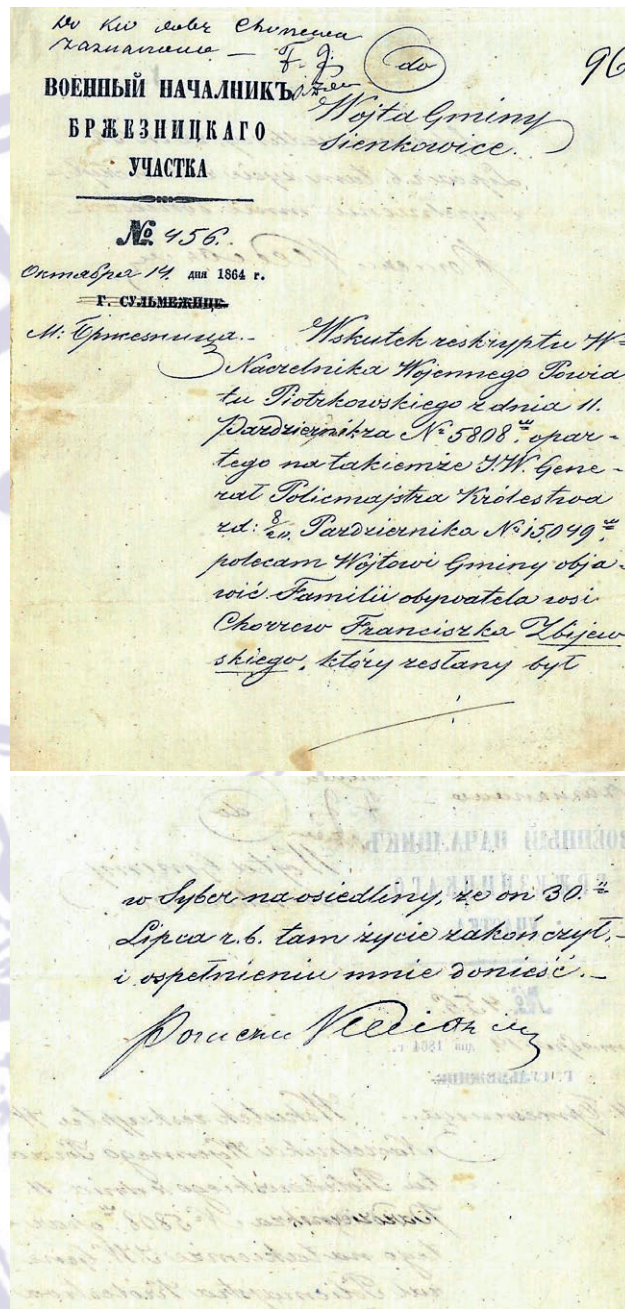 do
96
Wojta Gminy
Sienkowice.
ВОЕННЫЙ НАЧАЛНИКЪ
БРЖЕЗНИЦКАГО
УЧАСТКА
№ 456.
Октября 14. дня 1864 г.
Г. СУЛЬМЕЖИЦЕ.
М: Бржезница.-
Wskutek reskryptu W=
Naczelnika Wojennego Powia
tu Piotrkowskiego z dnia 11.
Pazdziernika № 5808, opar-
tego na takiemże J.W. Gene-
rał Policmajstra Królestwa
zd: 8/20 Pazdziernika № 15,049
polecam Wójtowi Gminy obja-
wić Familii obywatela wsi
Chorzew Franciszka Zbijew
skiego, który zesłany był
w Syber na osiedliny, że on 30.
Lipca r.b. tam życie zakończył,-
i ospełnieniu mnie donieść.-